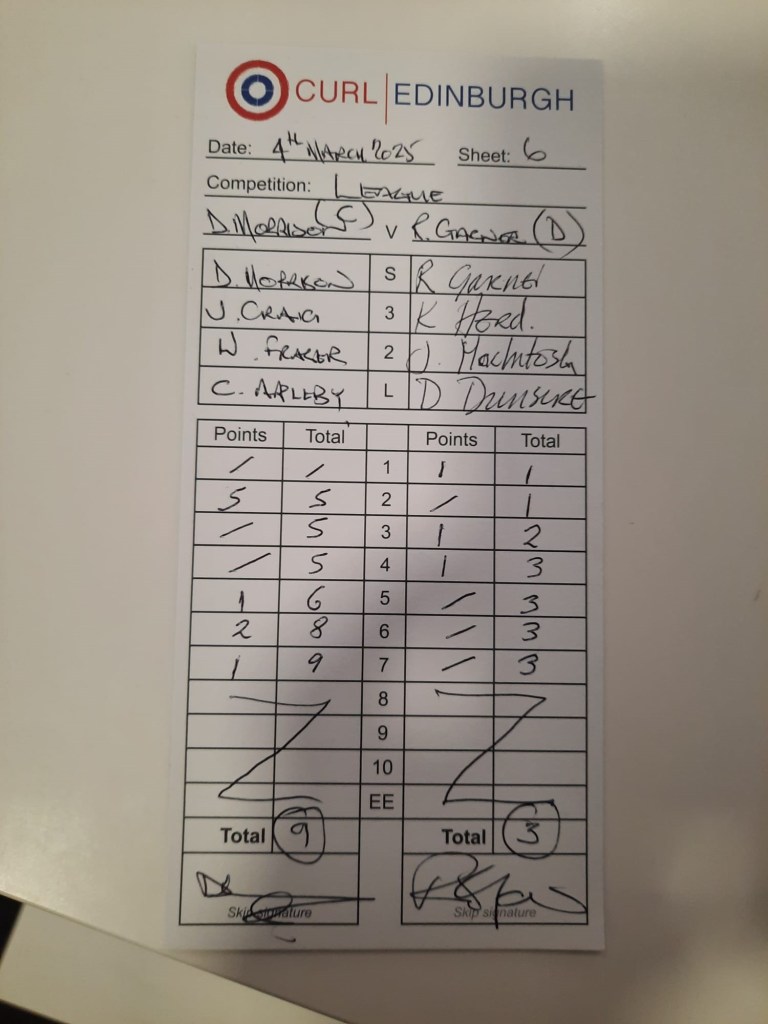 CURL | EDINBURGH
Date: 4TH MARCH 2025 Sheet: 6
Competition: LEAGUE
D. MORRISON (C) V R. GARNER (D)
D. MORRISON S R Garner
J. CRAIG 3 K HERD.
W. FRASER 2 J. MacIntosh
C. APLEBY L D DUNSIRE
Points Total Points Total
/ / 1 1 1
5 5 2 / 1
/ 5 3 1 2
/ 5 4 1 3
1 6 5 / 3
2 8 6 / 3
1 9 7 / 3
8
9
10
EE
Total 9 Total 3
Skip signature Skip signature